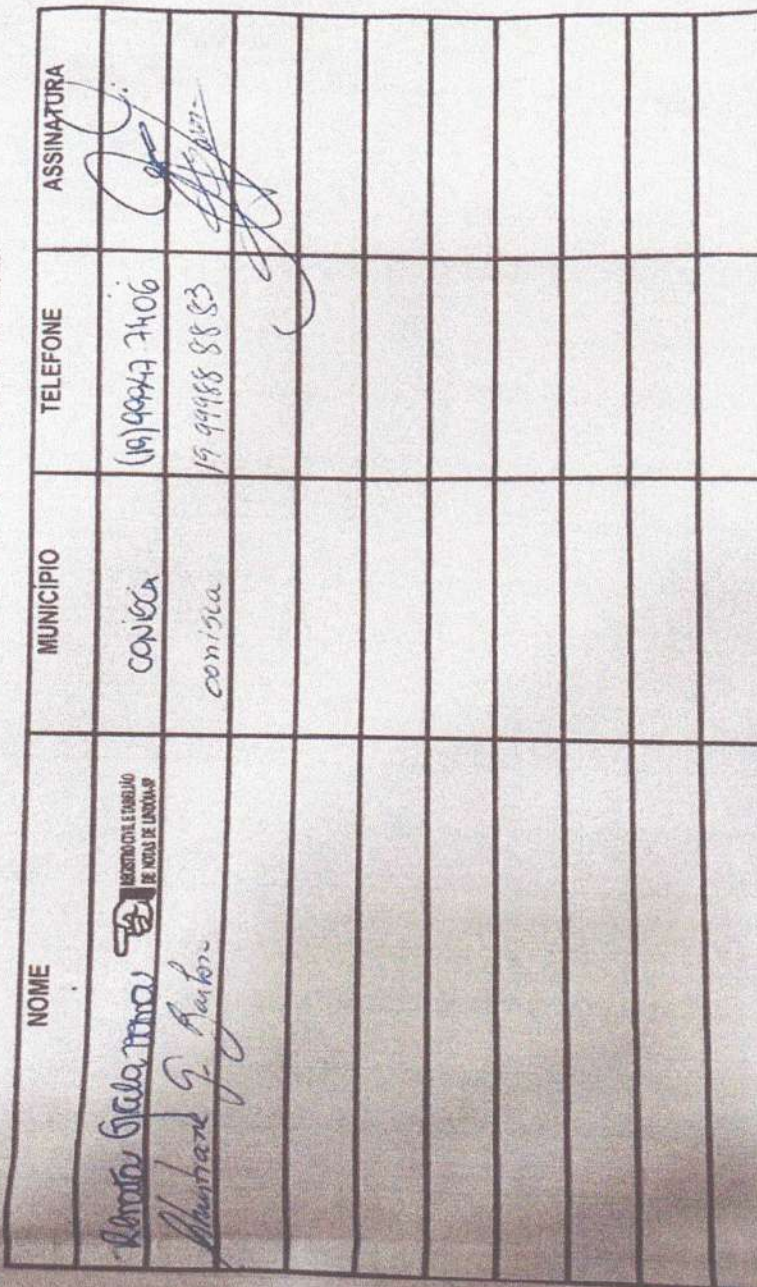 NOME MUNICÍPIO TELEFONE ASSINATURA
Renata REGISTRO CIVIL E TABELIÃO
DE NOTAS DE LINDÓIA-SP
CONISCA (19) 99947.7406
G. conisca 19 99988 8883